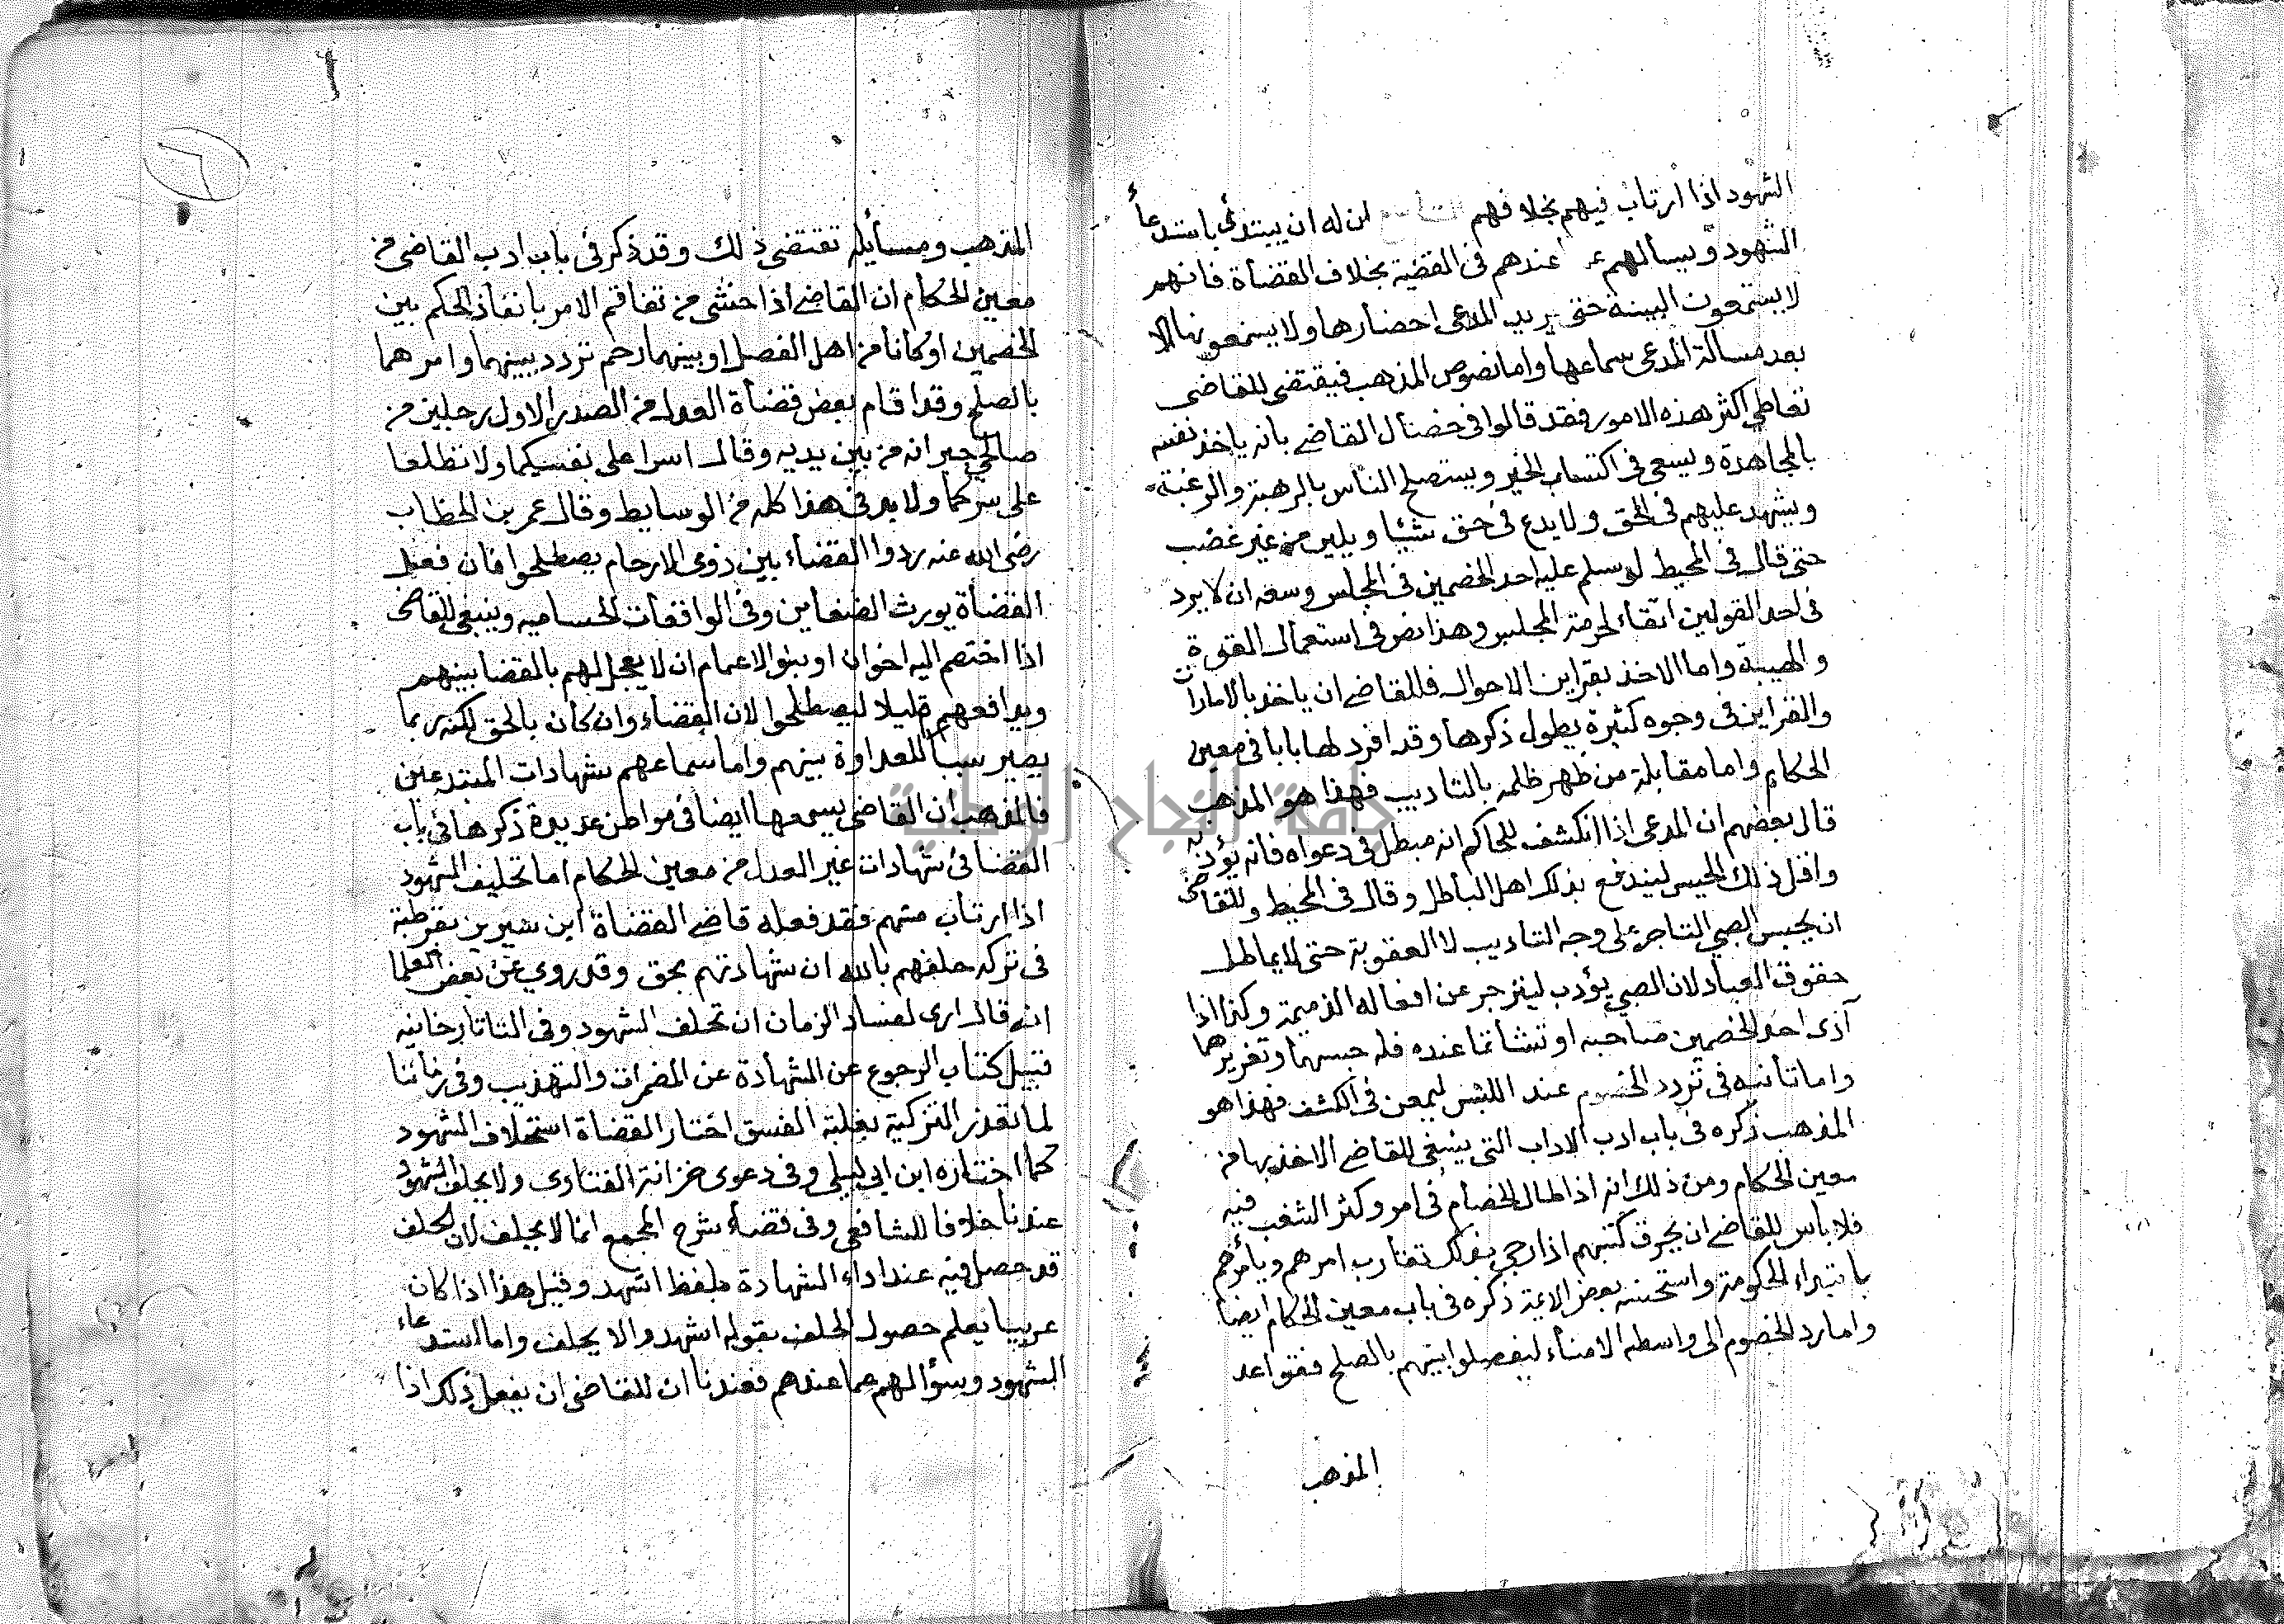 الشهود اذا ارتاب فيهم بخلافهم ان له ان يبتدئ باستدعاء
الشهود ويسألهم عندهم فى القضية بخلاف القضاة فانهم
لا يستمعون البينة حتى يريد المدعى احضارها ولا يسمعونها الا
بعد مسالة المدعى سماعها واما نصوص المذهب فيقتضى للقاضى
تعاطى اكثر هذه الامور فقد قالوا فى خصال القاضى بانه ياخذ نفسه
بالمجاهدة ويسعى فى اكتساب الخير ويستصلح الناس بالرهبة والرغبة
ويشهد عليهم فى الحق ولا يدع فى حق شيئا ويلين من غير غضب
حتى قال فى المحيط لو سلم عليه احد الخصمين فى المجلس وسعه ان لا يرد
فى احد القولين اتقاء لحرمة المجلس وهذا نص فى استعمال القوة
والهيبة واما الاخذ بقراين الاحوال فللقاضى ان ياخذ بالامارات
والقراين فى وجوه كثيرة يطول ذكرها وقد افرد لها بابا فى معين
الحكام واما مقابلة من ظهر ظلمه بالتاديب فهذا هو المذهب
قال بعضهم ان المدعى اذا انكشف للحاكم انه مبطل فى دعواه فانه يؤدبه
واقل ذلك الحبس ليندفع بذلك اهل الباطل وقال فى المحيط وللقاضى
ان يحبس الصبي التاجر على وجه التاديب لا العقوبة حتى لا يماطل
حقوق العباد لان الصبي يؤدب لينزجر عن افعاله الذميمة وكذا اذا
آذى احد الخصمين صاحبه او تشاتما عنده فله حبسهما وتعزيرهما
واما تأنيه فى تردد الخصوم عند اللبس ليمعن فى الكشف فهذا هو
المذهب ذكره فى باب ادب الاداب التى ينبغى للقاضى الاخذ بها من
معين الحكام ومن ذلك انه اذا طال الخصام فى امر وكثر الشغب فيه
فلا باس للقاضى ان يحرق كتبهم اذا رجى بذلك تقارب امرهم ويأمرهم
بابتداء الحكومة واستحسنه بعض الائمة ذكره فى باب معين الحكام ايضا
واما رد الخصوم الى واسطه الامناء ليفصلوا بينهم بالصلح فقواعد
المذهب
المذهب ومسائله تقتضى ذلك وقد ذكر فى باب ادب القاضى من
معين الحكام ان القاضى اذا خشى من تفاقم الامر بانفاذ الحكم بين
الخصمين او كانا من اهل الفضل او بينهما رحم تردد بينهما وامرهما
بالصلح وقد اقام بعض قضاة العدل من الصدر الاول رجلين من
صالحى جيرانه من بين يديه وقال استرا على نفسيكما ولا تطلعا
على سركما ولا بد فى هذا كله من الوسايط وقال عمر بن الخطاب
رضى الله عنه ردوا القضاء بين ذوى الارحام يصطلحوا فان فصل
القضاة يورث الضغاين وفى الواقعات الحساميه وينبغى للقاضى
اذا اختصم اليه اخوان او بنو الاعمام ان لا يعجل لهم بالقضا بينهم
ويدافعهم قليلا ليصطلحوا لان القضاء وان كان بالحق لكنه ربما
يصير سببا للعداوة بينهم واما سماعهم شهادات المبتدعين
فالمذهب ان القاضى يسمعها ايضا فى مواطن عديدة ذكرها فى باب
القضا فى شهادات غير العدل من معين الحكام اما تحليف الشهود
اذا ارتاب منهم فقد فعله قاضى القضاة ابن بشير بن بقرطبة
فى تركه حلفهم بالله ان شهادتهم بحق وقد روي عن بعض العلما
انه قال ارى لفساد الزمان ان تحلف الشهود وفى التاتارخانيه
قبيل كتاب الرجوع عن الشهادة عن المضمرات والتهذيب وفى زماننا
لما تعذر التزكية بغلبة الفسق اختار القضاة استحلاف الشهود
كما اختاره ابن ابى ليلى وفى دعوى خزانة الفتاوى ولا يحلف الشهود
عندنا خلافا للشافعى وفى قضاء شرح المجمع انما لا يحلف لان الحلف
قد حصل فيه عند اداء الشهادة بلفظ اشهد وقيل هذا اذا كان
عربيا يعلم حصول الحلف بقوله اشهد والا يحلف واما استدعاء
الشهود وسؤالهم عما عندهم فعندنا ان للقاضى ان يفعل ذلك اذا
جامعة النجاح الوطنية